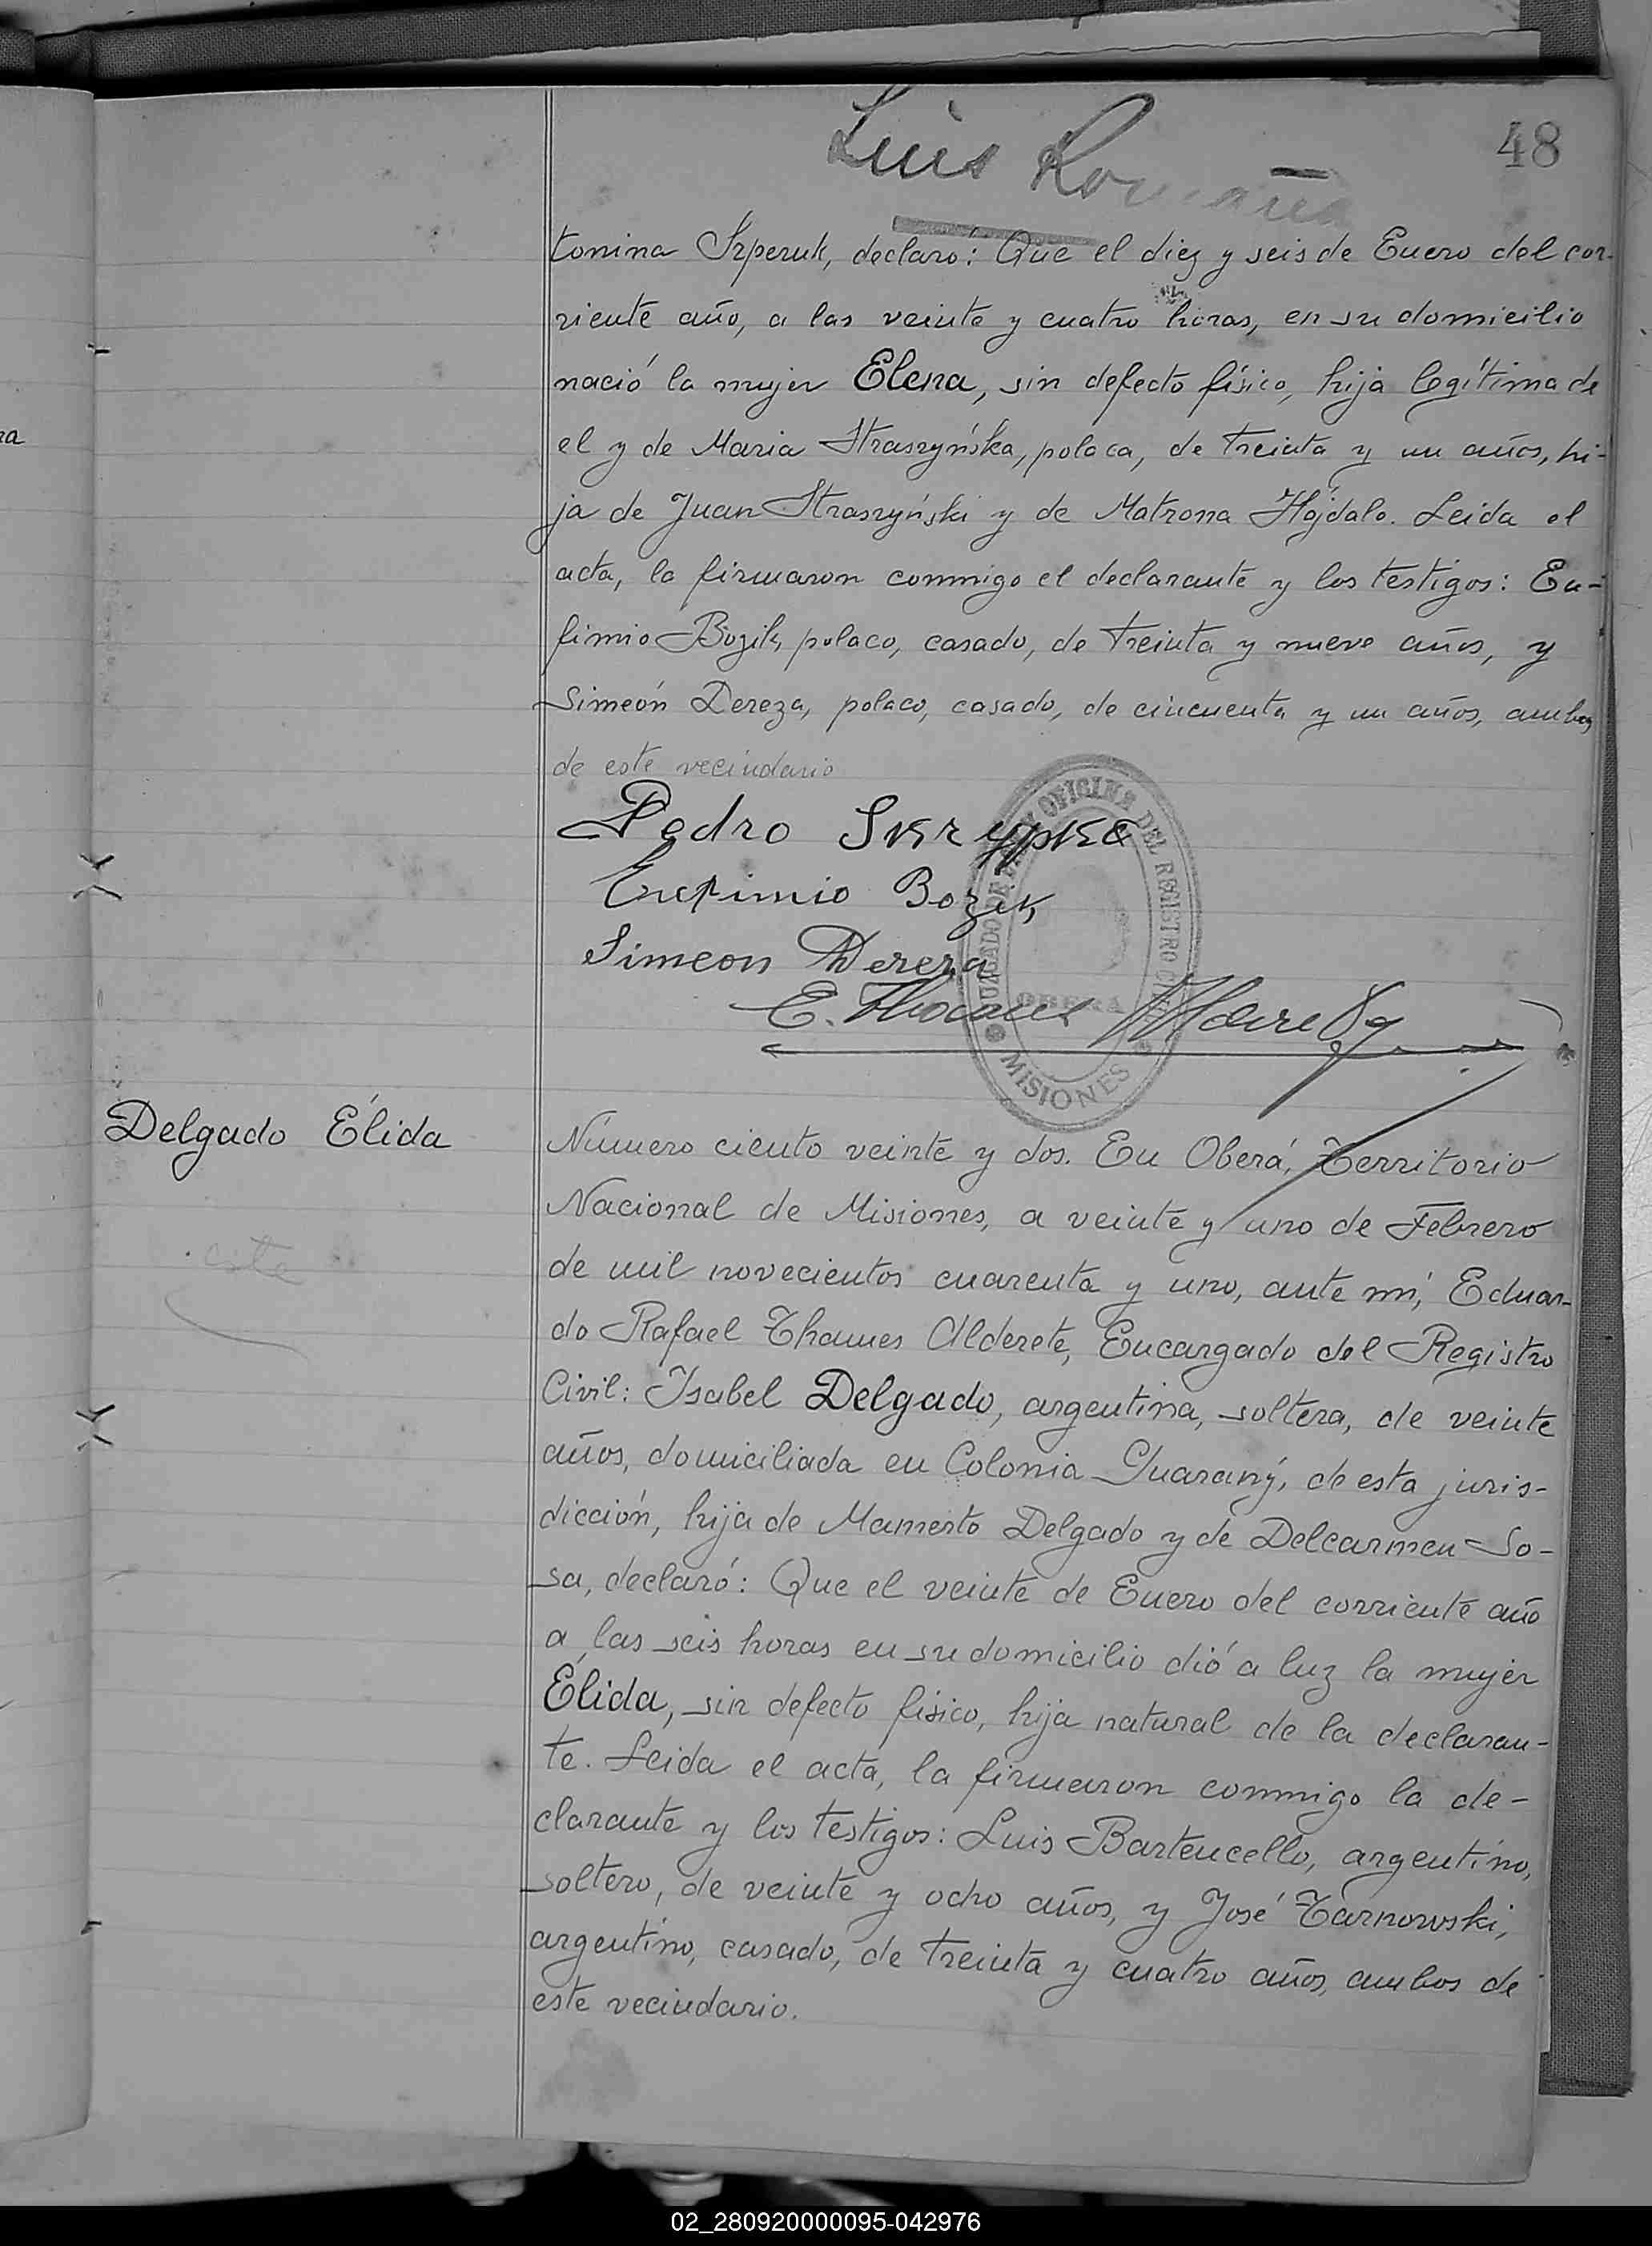 48
Luis Romaña
tonina Szperuk, declaró: Que el diez y seis de Enero del cor-
riente año, a las veinte y cuatro horas, en su domicilio
nació la mujer Elena, sin defecto físico, hija legítima de
el y de Maria Straszyńska, polaca, de treinta y un años, hi-
ja de Juan Straszyński y de Matrona Hójdalo. Leida el
acta, la firmaron conmigo el declarante y los testigos: Eu-
fimio Bozik, polaco, casado, de treinta y nueve años, y
Simeón Dereza, polaco, casado, de cincuenta y un años, ambos
de este vecindario
Pedro Skrypka
Eufimio Bozik
Simeon Dereza
E. Thames Alderete
OFICINA DEL REGISTRO CIVIL
OBERÁ
MISIONES
Delgado Élida
este
Número ciento veinte y dos. En Oberá, Territorio
Nacional de Misiones, a veinte y uno de Febrero
de mil novecientos cuarenta y uno, ante mí, Eduar-
do Rafael Thames Alderete, Encargado del Registro
Civil: Isabel Delgado, argentina, soltera, de veinte
años, domiciliada en Colonia Guaraný, de esta juris-
dicción, hija de Mamerto Delgado y de Delcarmen So-
sa, declaró: Que el veinte de Enero del corriente año
a las seis horas en su domicilio dió a luz la mujer
Élida, sin defecto físico, hija natural de la declaran-
te. Leida el acta, la firmaron conmigo la de-
clarante y los testigos: Luis Bartencello, argentino,
soltero, de veinte y ocho años, y José Tarnowski,
argentino, casado, de treinta y cuatro años, ambos de
este vecindario.
02_280920000095-042976